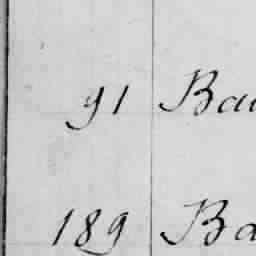 91 Bau
189 Ba